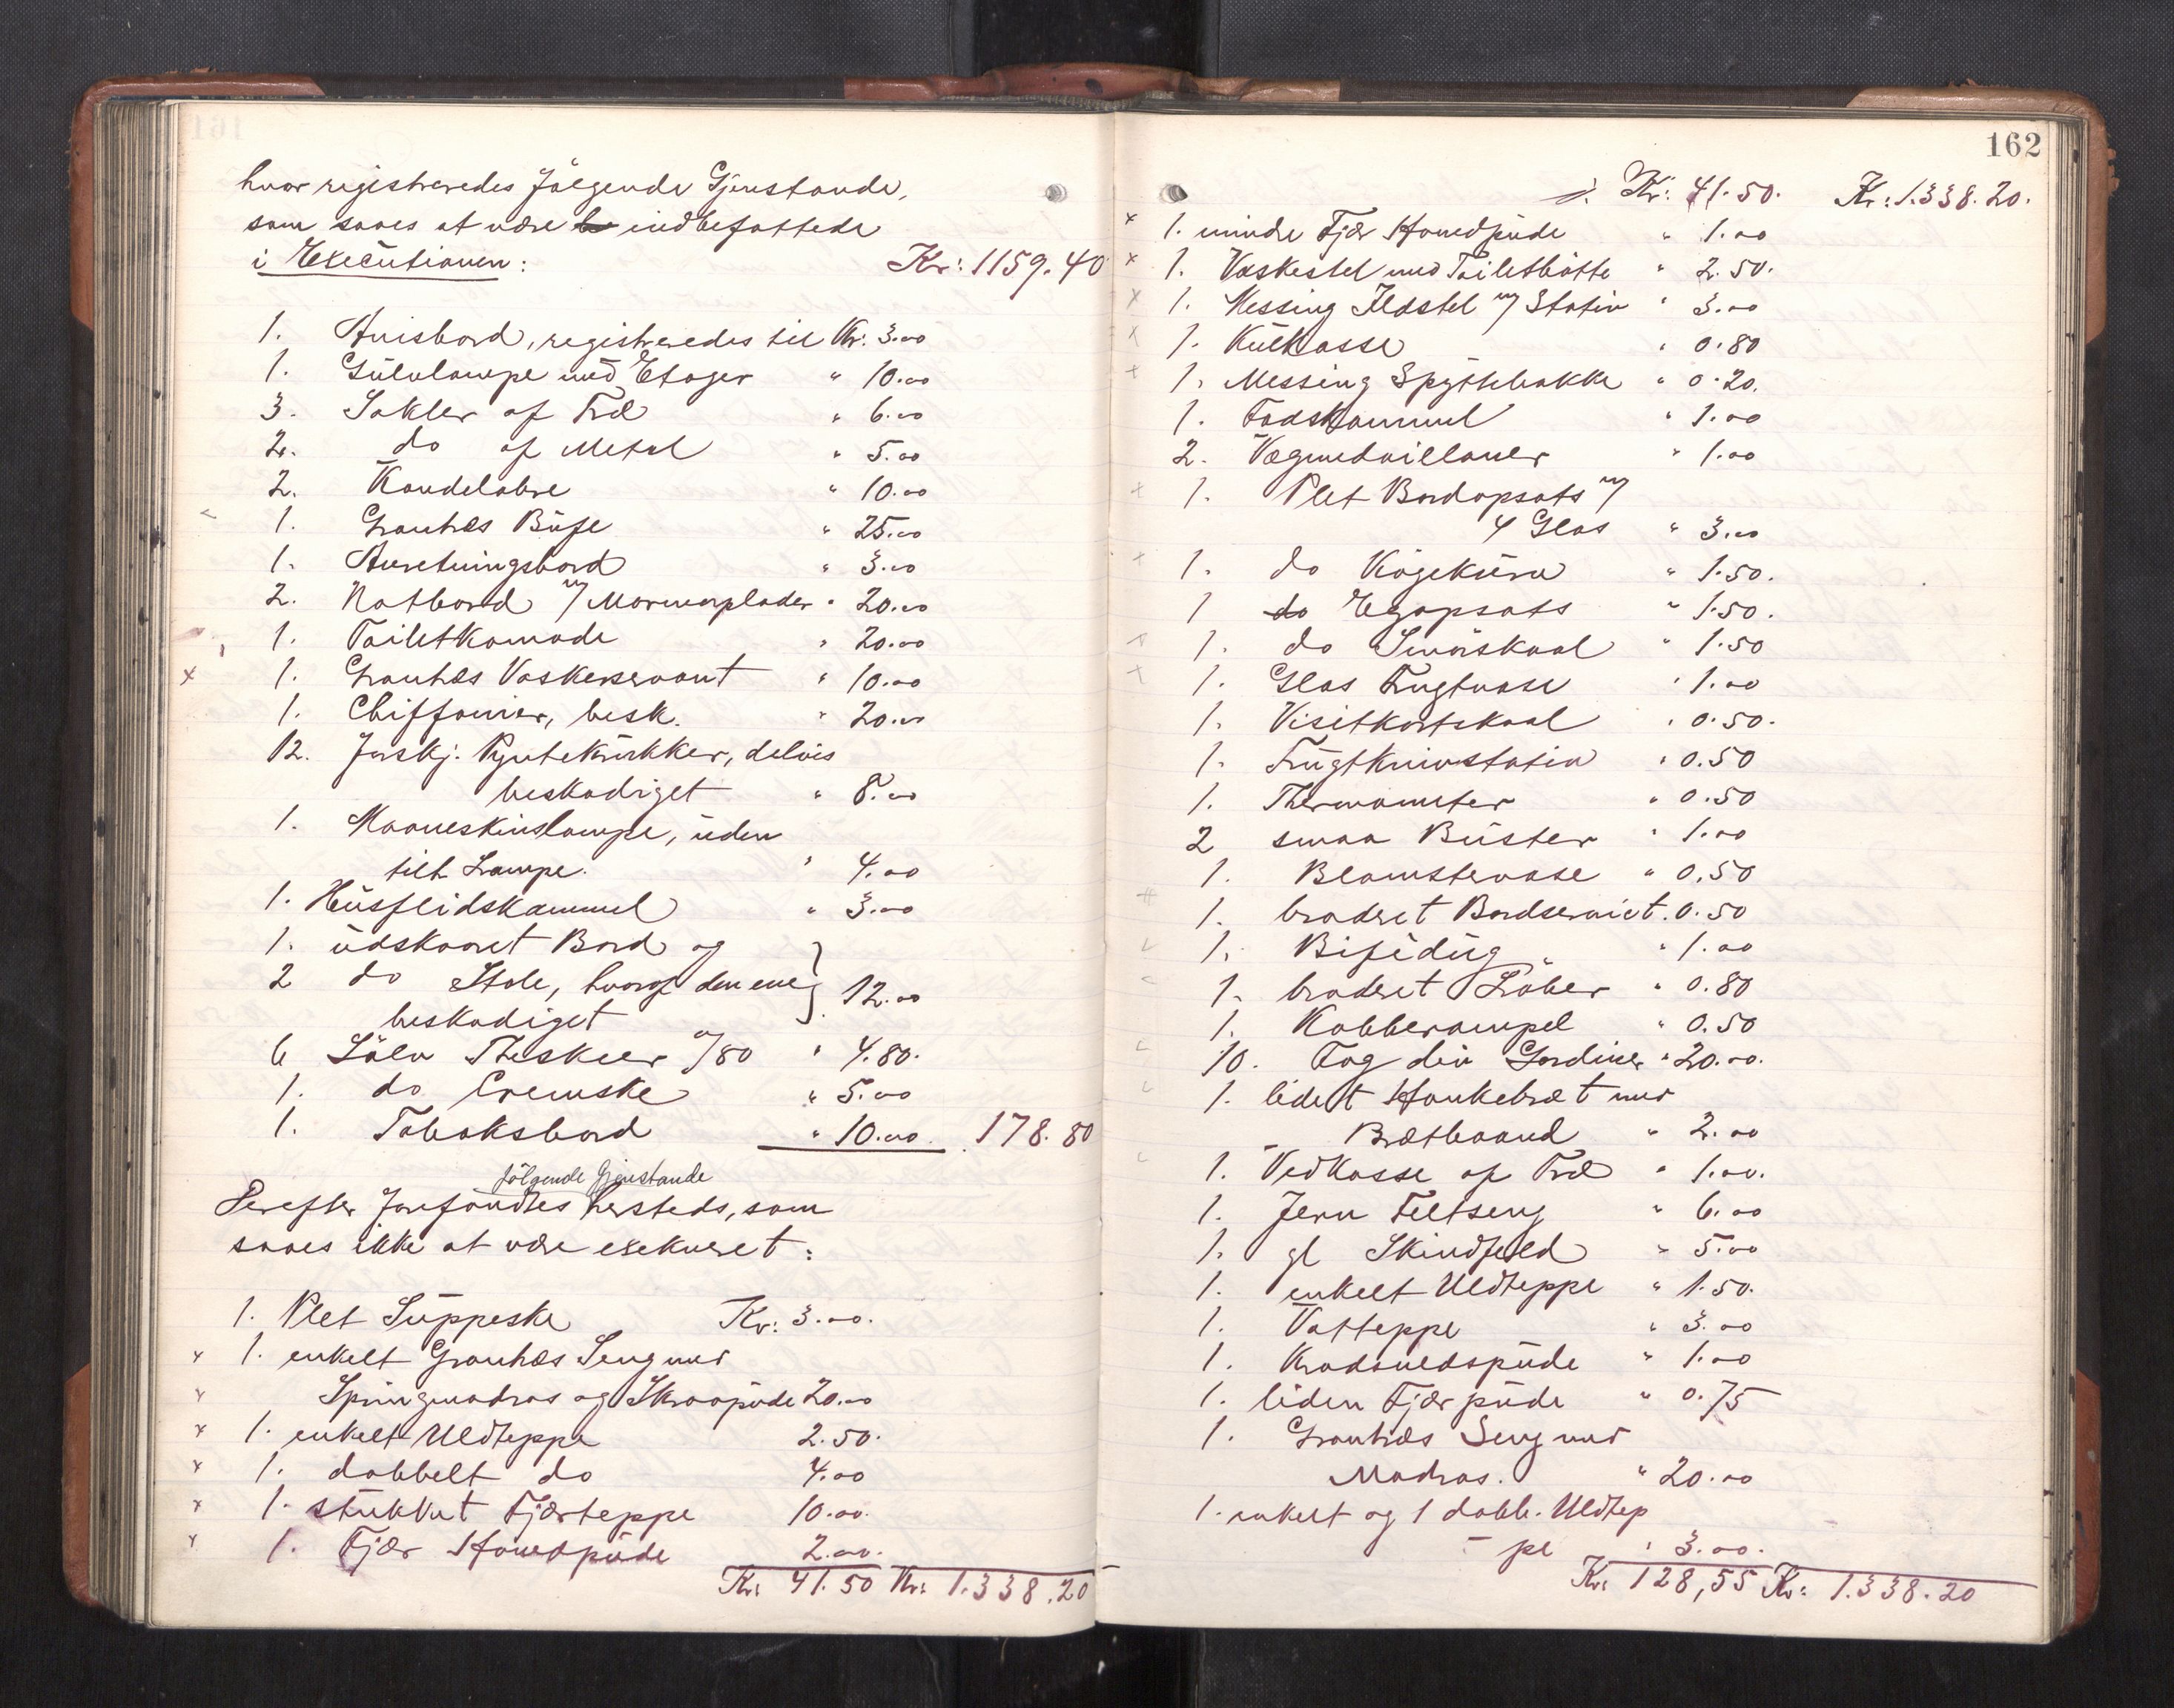 hvor registreredes følgende Gjenstande,
som saaes at være indbefattede
i Executionen: Kr: 1159.40
1. Avisbord, registreredes til Kr. 3.00
1. Gülvlampe med Etager " 10.00
3. Sokler af Træ " 6.00
2. do af Metal " 5.00
2. Kandelabre " 10.00
1. Granlæs Büfe " 25.00
1. Anretningsbord " 3.00
2. Natbord m/ Marmorplader " 20.00
1. Toiletkomode " 20.00
x 1. Granlæs Vaskeservant " 10.00
1. Chiffonier, besk. " 20.00
12. forskj. Pyntekrükker, delvis
beskadiget " 8.00
1. Maaneskinslampe, üden
tilh. Lampe. " 4.00
1. Hüsflidskammel " 3.00
1. üdskaaret Bord og
2 do Stole, hvoraf den ene } 12.00
beskadiget
6 Sölv Theskeer a/80 " 4.80.
1. do Cremske " 5.00
1. Tobaksbord " 10.00. 178.80
följende Gjenstande
Derefter forefandtes hersteds, som
saaes ikke at være exekveret:
1. Plet Süppeske Kr: 3.00.
x 1. enkelt Granlæs Seng med
x Springmadras og Skraapüde 20.00
x 1. enkelt Uldteppe 2.50.
x 1. dobbelt do 4.00
x 1. stükket Fjærteppe 10.00.
x 1. Fjær Hovedpüde 2.00.
Kr: 41.50 Kr: 1.338.20
162
Kr: 41.50. Kr: 1338.20.
x 1. mindre Fjær Hovedpüde " 1.00
x 1. Vaskestel med Toiletbötte " 2.50.
x 1. Messing Ildstel m/ Stativ " 3.00
x 1. Külkasse " 0.80
x 1. Messing Spyttebakke " 0.20.
1. Fodskammel " 1.00
2. Vægmedailloner " 1.00
x 1. Plet Bordopsats m/
4 Glas " 3.00
x 1. do Kagekürv " 1.50.
1 do Egopsats " 1.50.
x 1. do Smörskaal " 1.50
x 1. Glas Frugtvase " 1.00
1. Visitkortskaal " 0.50.
1. Frügtknivstativ " 0.50
1. Thermometer " 0.50
2 smaa Büster " 1.00
1. Blomstervase " 0.50
1. broderet Bordserviet. 0.50
1. Bifidüg " 1.00
1. broderet Löber " 0.80
1. Kobberampel " 0.50
10. Fag div Gardiner " 20.00.
1. lidet Hankebræt med
Brætbaand " 2.00
1. Vedkasse af Træ " 1.00.
1. Jern Feltseng " 6.00
1. gl Skindfeld " 5.00
1. enkelt Uldteppe " 1.50.
1. Vatteppe " 3.00
1. Krøduldspüde " 1.00
1. liden Fjærpüde " 0.75
1. Granlæs Seng med
Madras. " 20.00
1. enkelt og 1 dobb. Uldtep
- pe " 3.00.
Kr: 128,55 Kr: 1.338.20